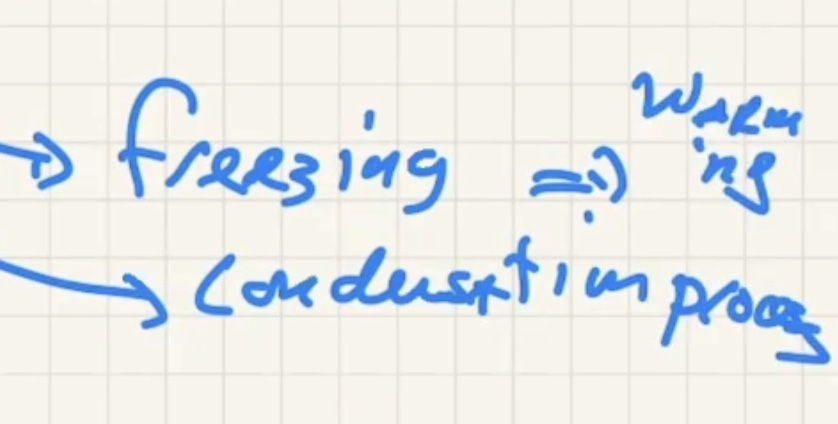 → freezing ⇒ Warming
→ Condensation process